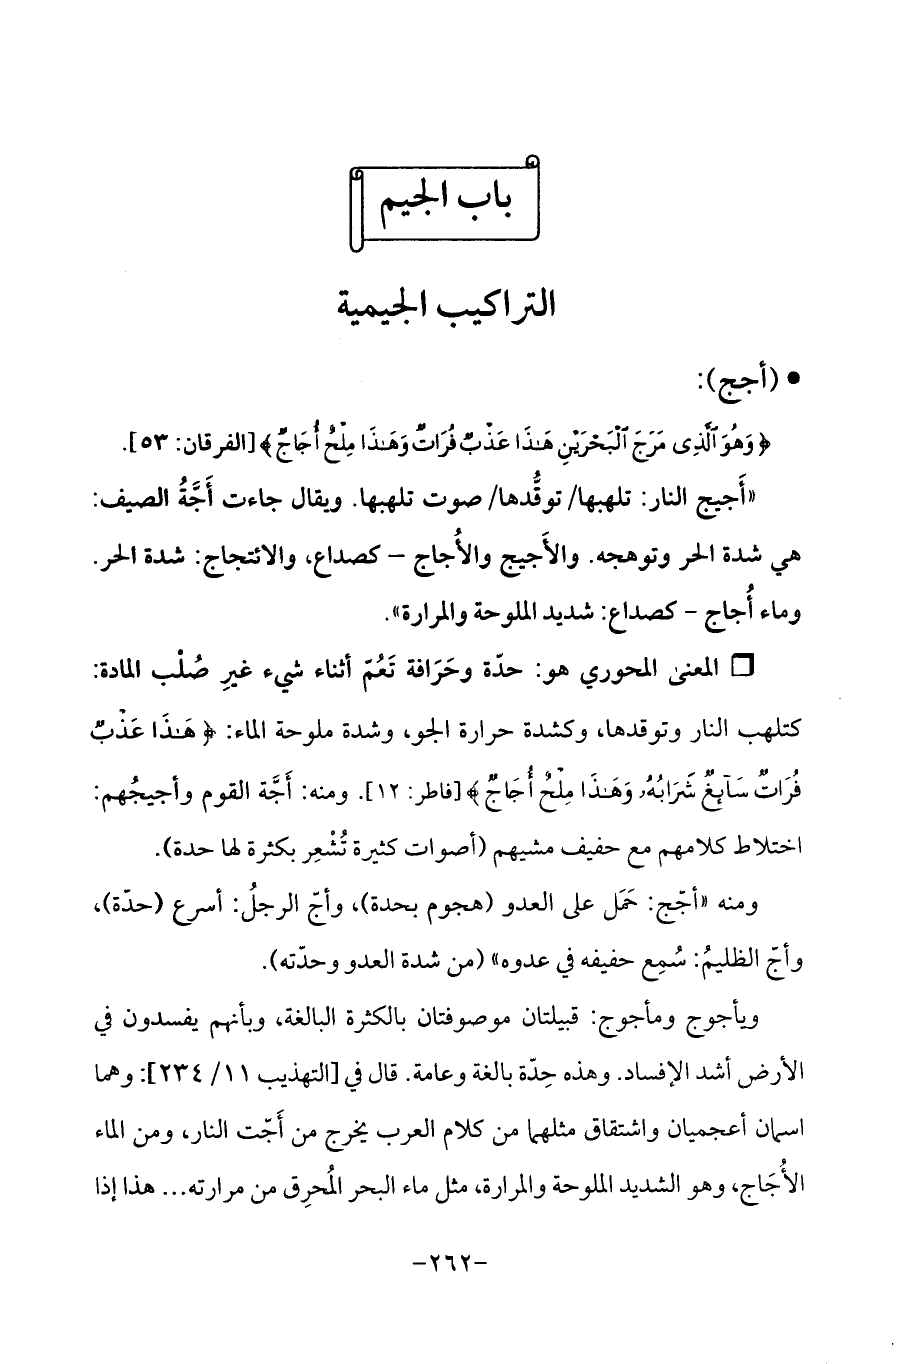 باب الجيم
التراكيب الجيمية
• (أجج):
﴿وَهُوَ ٱلَّذِى مَرَجَ ٱلْبَحْرَيْنِ هَـٰذَا عَذْبٌ فُرَاتٌ وَهَـٰذَا مِلْحٌ أُجَاجٌ﴾ [الفرقان: ٥٣].
«أَجيج النار: تلهبها/ توقُّدها/ صوت تلهبها. ويقال جاءت أَجَّةُ الصيف:
هي شدة الحر وتوهجه. والأَجيج والأُجاج – كصداع، والائتجاج: شدة الحر.
وماء أُجاج – كصداع: شديد الملوحة والمرارة».
❒ المعنى المحوري هو: حدّة وحَرَافة تَعُمّ أثناء شيء غيرِ صُلْب المادة:
كتلهب النار وتوقدها، وكشدة حرارة الجو، وشدة ملوحة الماء: ﴿هَـٰذَا عَذْبٌ
فُرَاتٌ سَآئِغٌ شَرَابُهُۥ وَهَـٰذَا مِلْحٌ أُجَاجٌ﴾ [فاطر: ١٢]. ومنه: أَجَّة القوم وأجيجُهم:
اختلاط كلامهم مع حفيف مشيهم (أصوات كثيرة تُشْعِر بكثرة لها حدة).
ومنه «أجّج: حَمَل على العدو (هجوم بحدة)، وأجّ الرجلُ: أسرع (حدّة)،
وأجّ الظليمُ: سُمِع حفيفه في عدوه» (من شدة العدو وحدّته).
ويأجوج ومأجوج: قبيلتان موصوفتان بالكثرة البالغة، وبأنهم يفسدون في
الأرض أشد الإفساد. وهذه حِدّة بالغة وعامة. قال في [التهذيب ١١/ ٢٣٤]: وهما
اسمان أعجميان واشتقاق مثلهما من كلام العرب يخرج من أَجّت النار، ومن الماء
الأُجَاج، وهو الشديد الملوحة والمرارة، مثل ماء البحر المُحرِق من مرارته... هذا إذا
-٢٦٢-